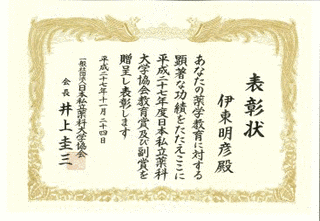 表彰状
伊東明彦殿
あなたの薬学教育に対する
顕著な功績をたたえここに
平成二十七年度日本私立薬科
大学協会教育賞及び副賞を
贈呈し表彰します
平成二十七年十一月二十四日
一般社団法人日本私立薬科大学協会
会長 井上圭三